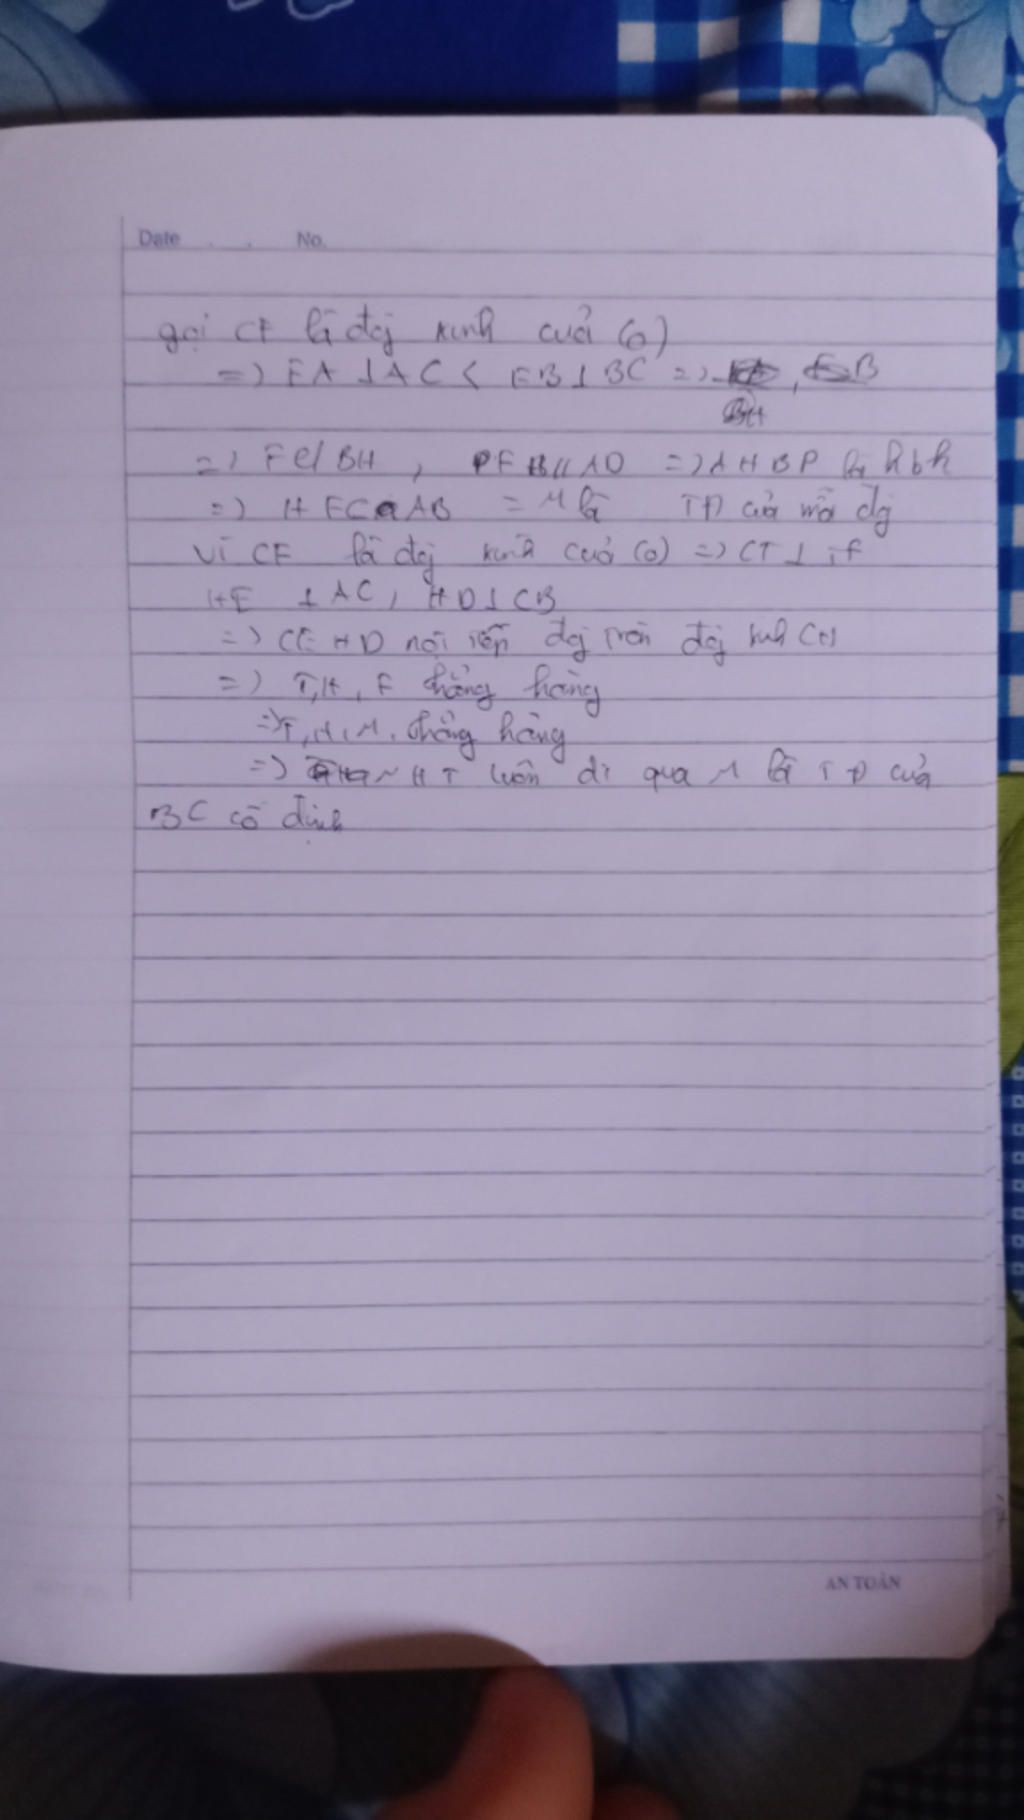 Date . . No.
gọi CF là đg kính của (O)
=) FA ⊥ AC < FB ⊥ BC =) , B
BH
=) F // BH , FB // AD =) AHBP là hbh
=) H FC AB = M là TĐ của mỗi đg
Vì CF là đg kính của (O) =) CT ⊥ TF
HE ⊥ AC, HD ⊥ CB
=) CEHD nội tiếp đg tròn đg kính CH
=) T, H, F thẳng hàng
=) T, H, M, thẳng hàng
=) HT luôn đi qua M là TĐ của
BC cố định
AN TOÀN